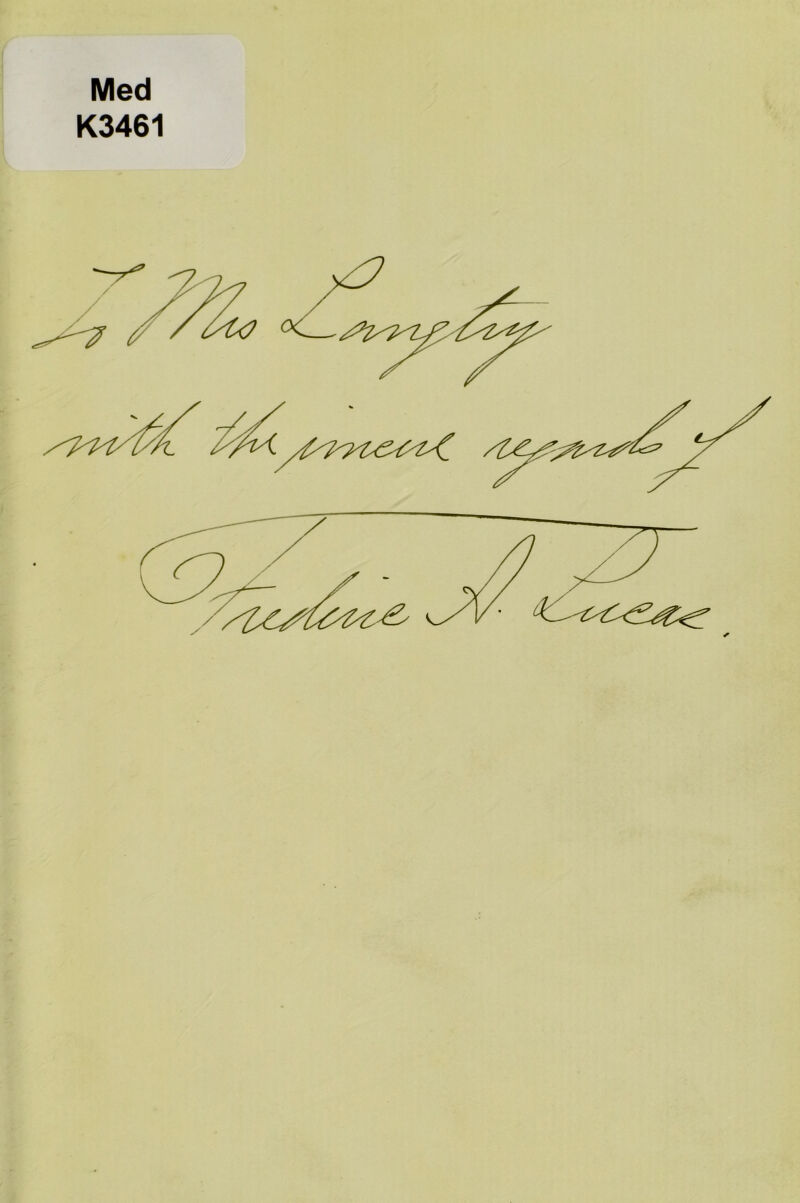 Med
K3461
To Mrs Langtry
with the sincere regards of
Frederic A. Lucas.